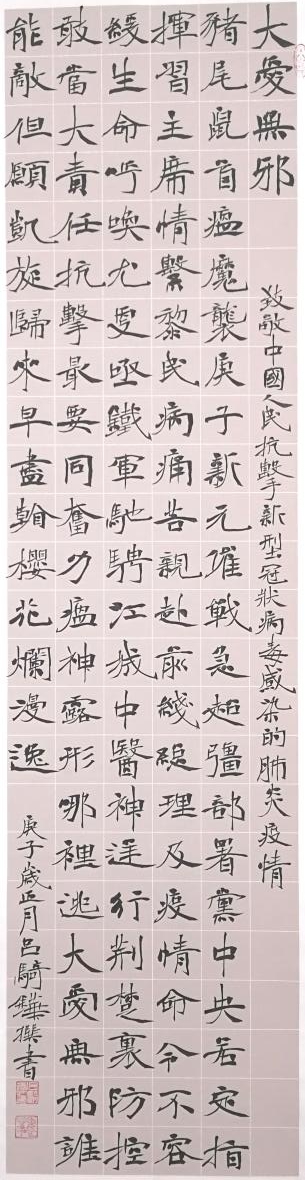 大愛無邪
致敬中國人民抗擊新型冠狀病毒感染的肺炎疫情
豬尾鼠首瘟魔襲庚子新元催戰急超彊部署黨中央若定指
揮習主席情繫黎民病痛苦親赴前綫總理及疫情命令不容
緩生命呼喚尤亟鐵軍馳騁江城中醫神行荊楚裏防控
敢當大責任抗擊最要同奮力瘟神露形哪裡逃大愛無邪誰
能敵但願凱旋歸來早盡翰櫻花爛漫逸
庚子歲正月呂騎鏵撰書